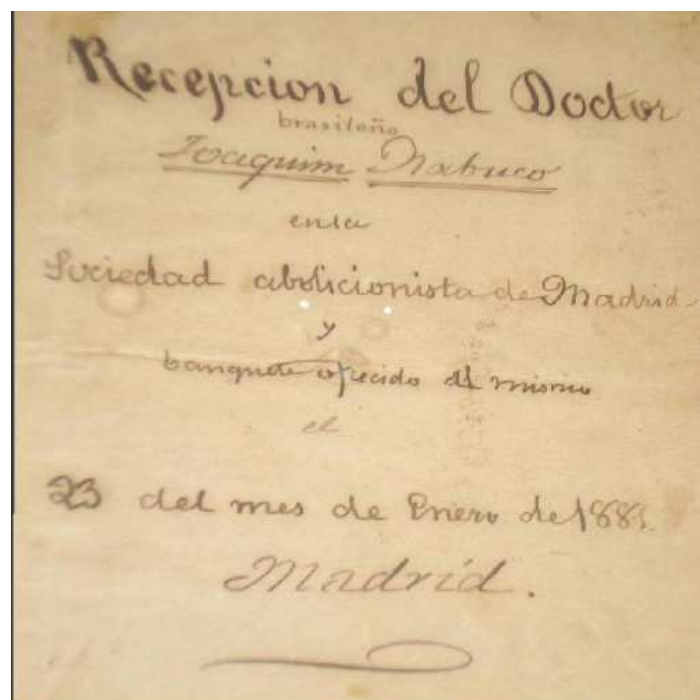 Recepcion del Doctor
brasileño
Joaquim Nabuco
en la
Sociedad abolicionista de Madrid
y
banquete ofrecido al mismo
el
23 del mes de Enero de 1881.
Madrid.